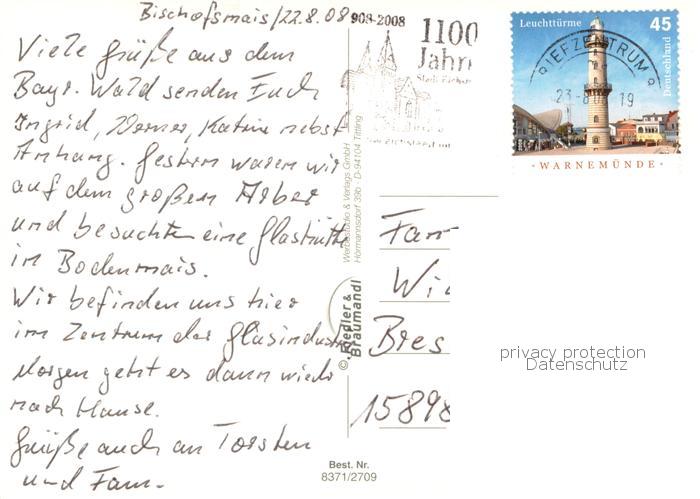 Bischofsmais/22.8.08
Viele Grüße aus dem
Bayr. Wald senden Euch
Ingrid, Werner, Katrin nebst
Anhang. Gestern waren wir
auf dem großen Arber
und besuchten eine Glashütte
in Bodenmais.
Wir befinden uns hier
im Zentrum der Glasindustrie
Morgen geht es dann wieder
nach Hause.
Grüße auch an Torsten
und Fam.
908-2008
1100
Jahr
Leuchttürme
45
Deutschland
WARNEMÜNDE
IEFZENTRUM
23-8
19
Werbestudio & Verlags GmbH
Hörmannsdorf 39b · D-94104 Tittling
© Fiedler &
Braumandl
Fam
Wi
Bres
15898
privacy protection
Datenschutz
Best. Nr.
8371/2709